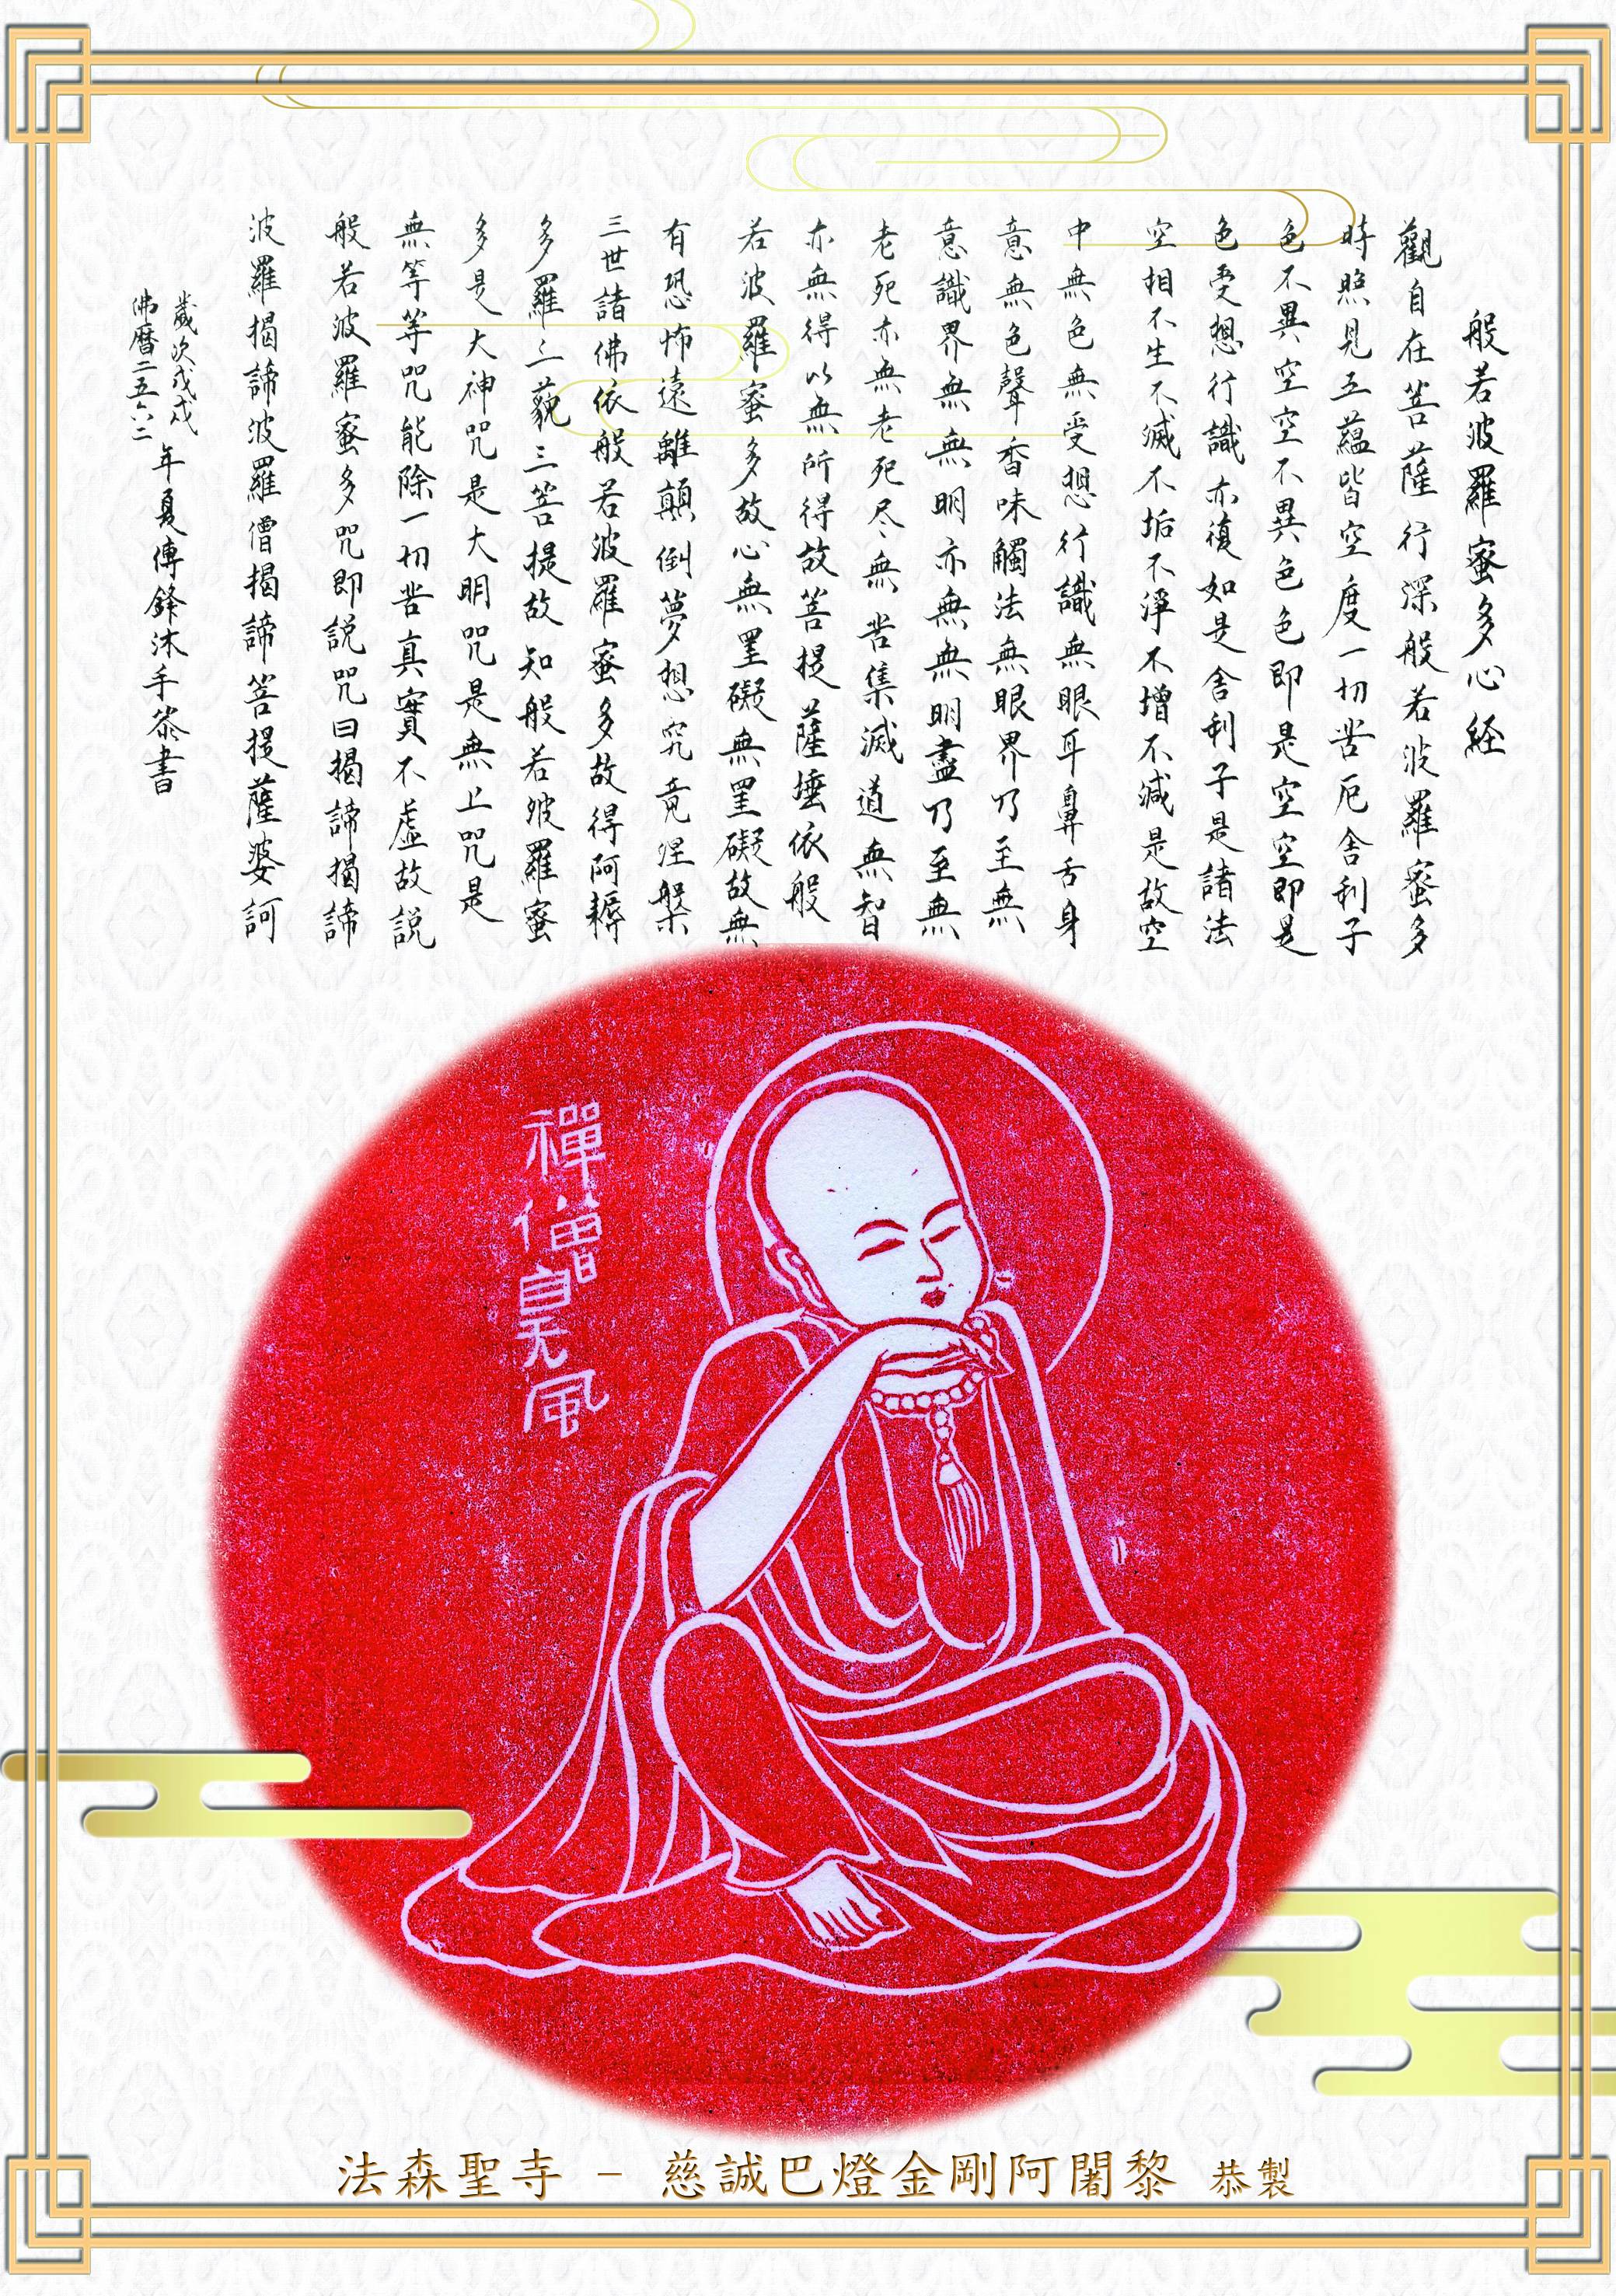 般若波羅蜜多心経
觀自在菩薩行深般若波羅蜜多
時照見五蘊皆空度一切苦厄舍利子
色不異空空不異色色即是空空即是
色受想行識亦復如是舍利子是諸法
空相不生不滅不垢不淨不增不減是故空
中無色無受想行識無眼耳鼻舌身
意無色聲香味觸法無眼界乃至無
意識界無無明亦無無明盡乃至無
老死亦無老死尽無苦集滅道無智
亦無得以無所得故菩提薩埵依般
若波羅蜜多故心無罣礙無罣礙故無
有恐怖遠離顛倒夢想究竟涅槃
三世諸佛依般若波羅蜜多故得阿耨
多羅三藐三菩提故知般若波羅蜜
多是大神咒是大明咒是無上咒是
無等等咒能除一切苦真實不虛故説
般若波羅蜜多咒即説咒曰揭諦揭諦
波羅揭諦波羅僧揭諦菩提薩婆訶
歲次戊戌
佛曆二五六二
年夏傅鋒沐手恭書
禪僧自風
法森聖寺 - 慈誠巴燈金剛阿闍黎 恭製